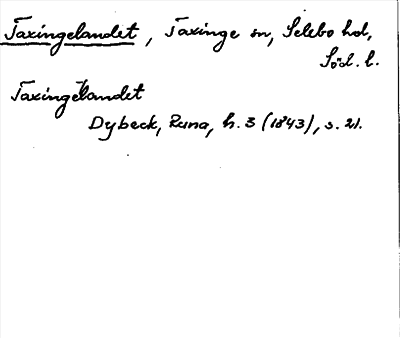 Taxingelandet, Taxinge sn, Selebo hd,
Söd. l.
Taxingelandet
Dybeck, Runa, h. 3 (1843), s. 21.